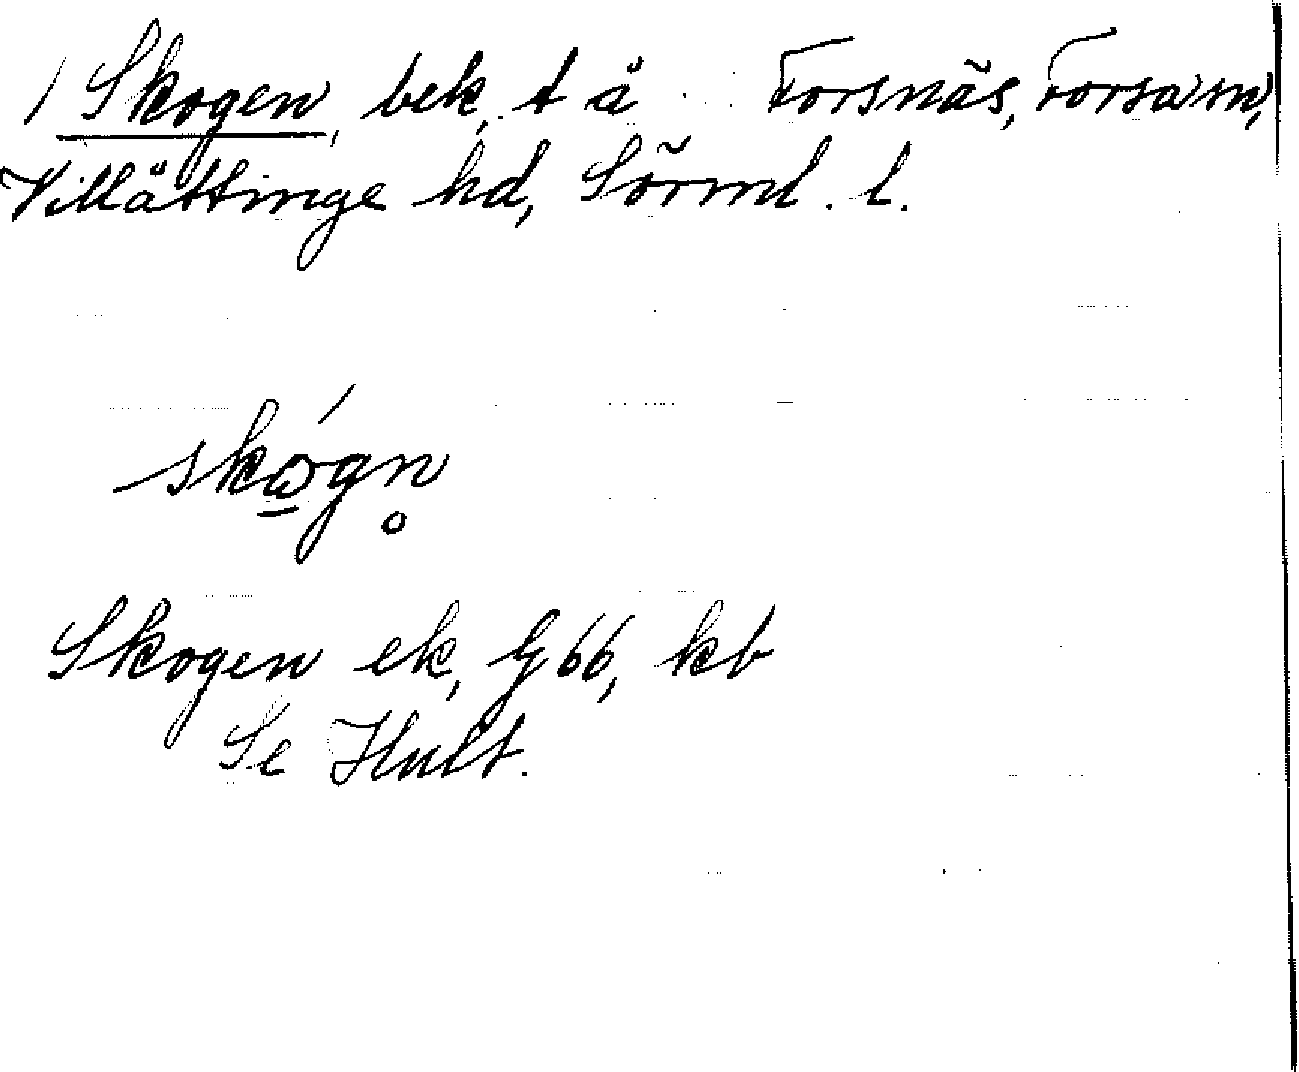 / Skogen, bek, t å Forsnäs, Forsa sn,
Villåttinge hd, Sörml. l.
skǿgn̥
Skogen ek, G 66, kb
Se Hult.